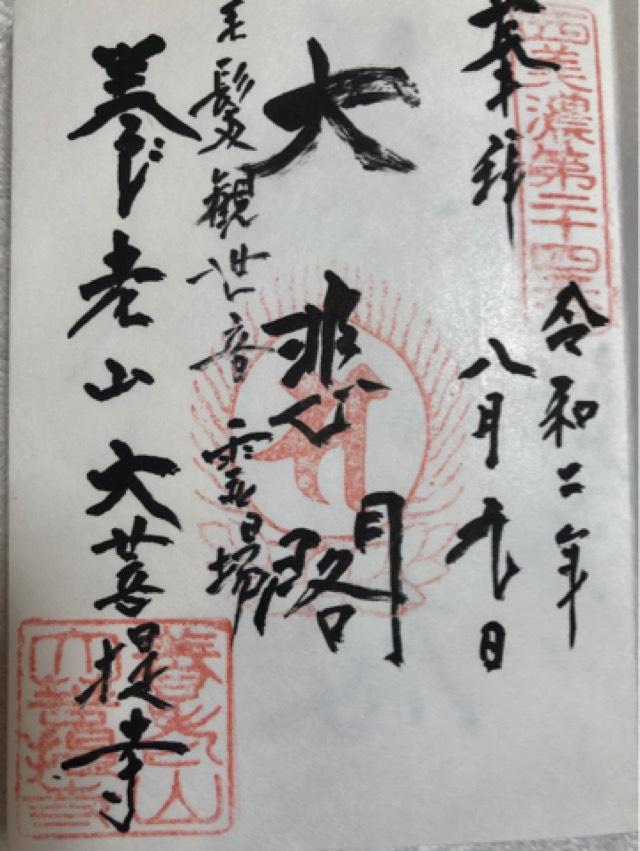 西美濃第二十四
奉拝
令和二年
八月九日
大悲閣
毛髪観世音霊場
養老山大菩提寺
養老山
大菩提寺